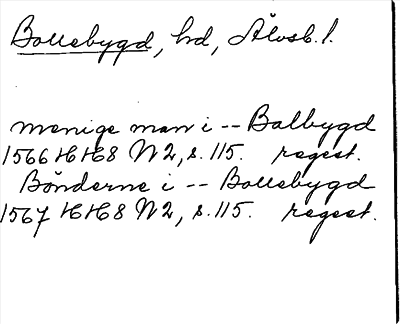 Bollebygd, hd, Älvsb. l.
menige man i -- Balbygd
1566 HH8 N 2, s. 115. regest.
Bönderne i -- Bollebygd
1567 HH8 N 2, s. 115. regest.